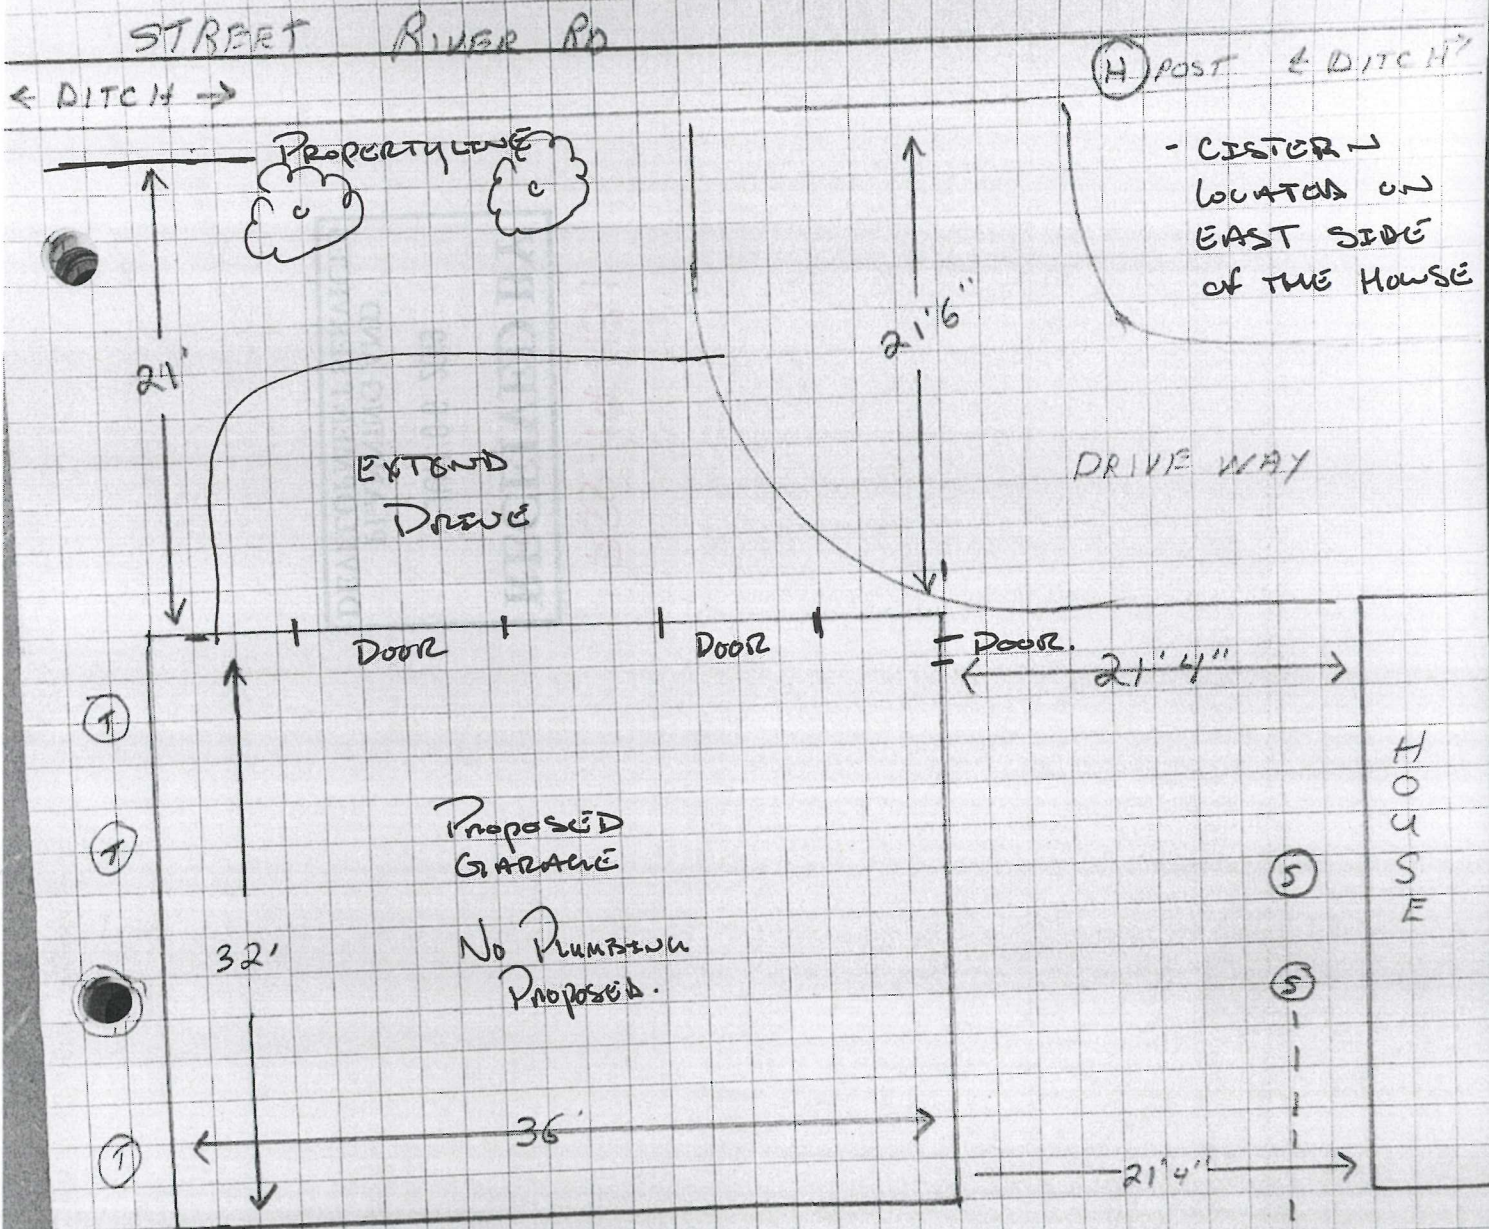 STREET RIVER RD
H POST ← DITCH →
← DITCH →
PROPERTY LINE
C
C
- CISTERN
LOCATED ON
EAST SIDE
OF THE HOUSE
21'
21'6"
EXTEND
DRIVE
DRIVE WAY
DOOR
DOOR
DOOR.
21'4"
T
T
T
PROPOSED
GARAGE
NO PLUMBING
PROPOSED.
32'
36'
HOUSE
S
S
21'4"
RECEIVED